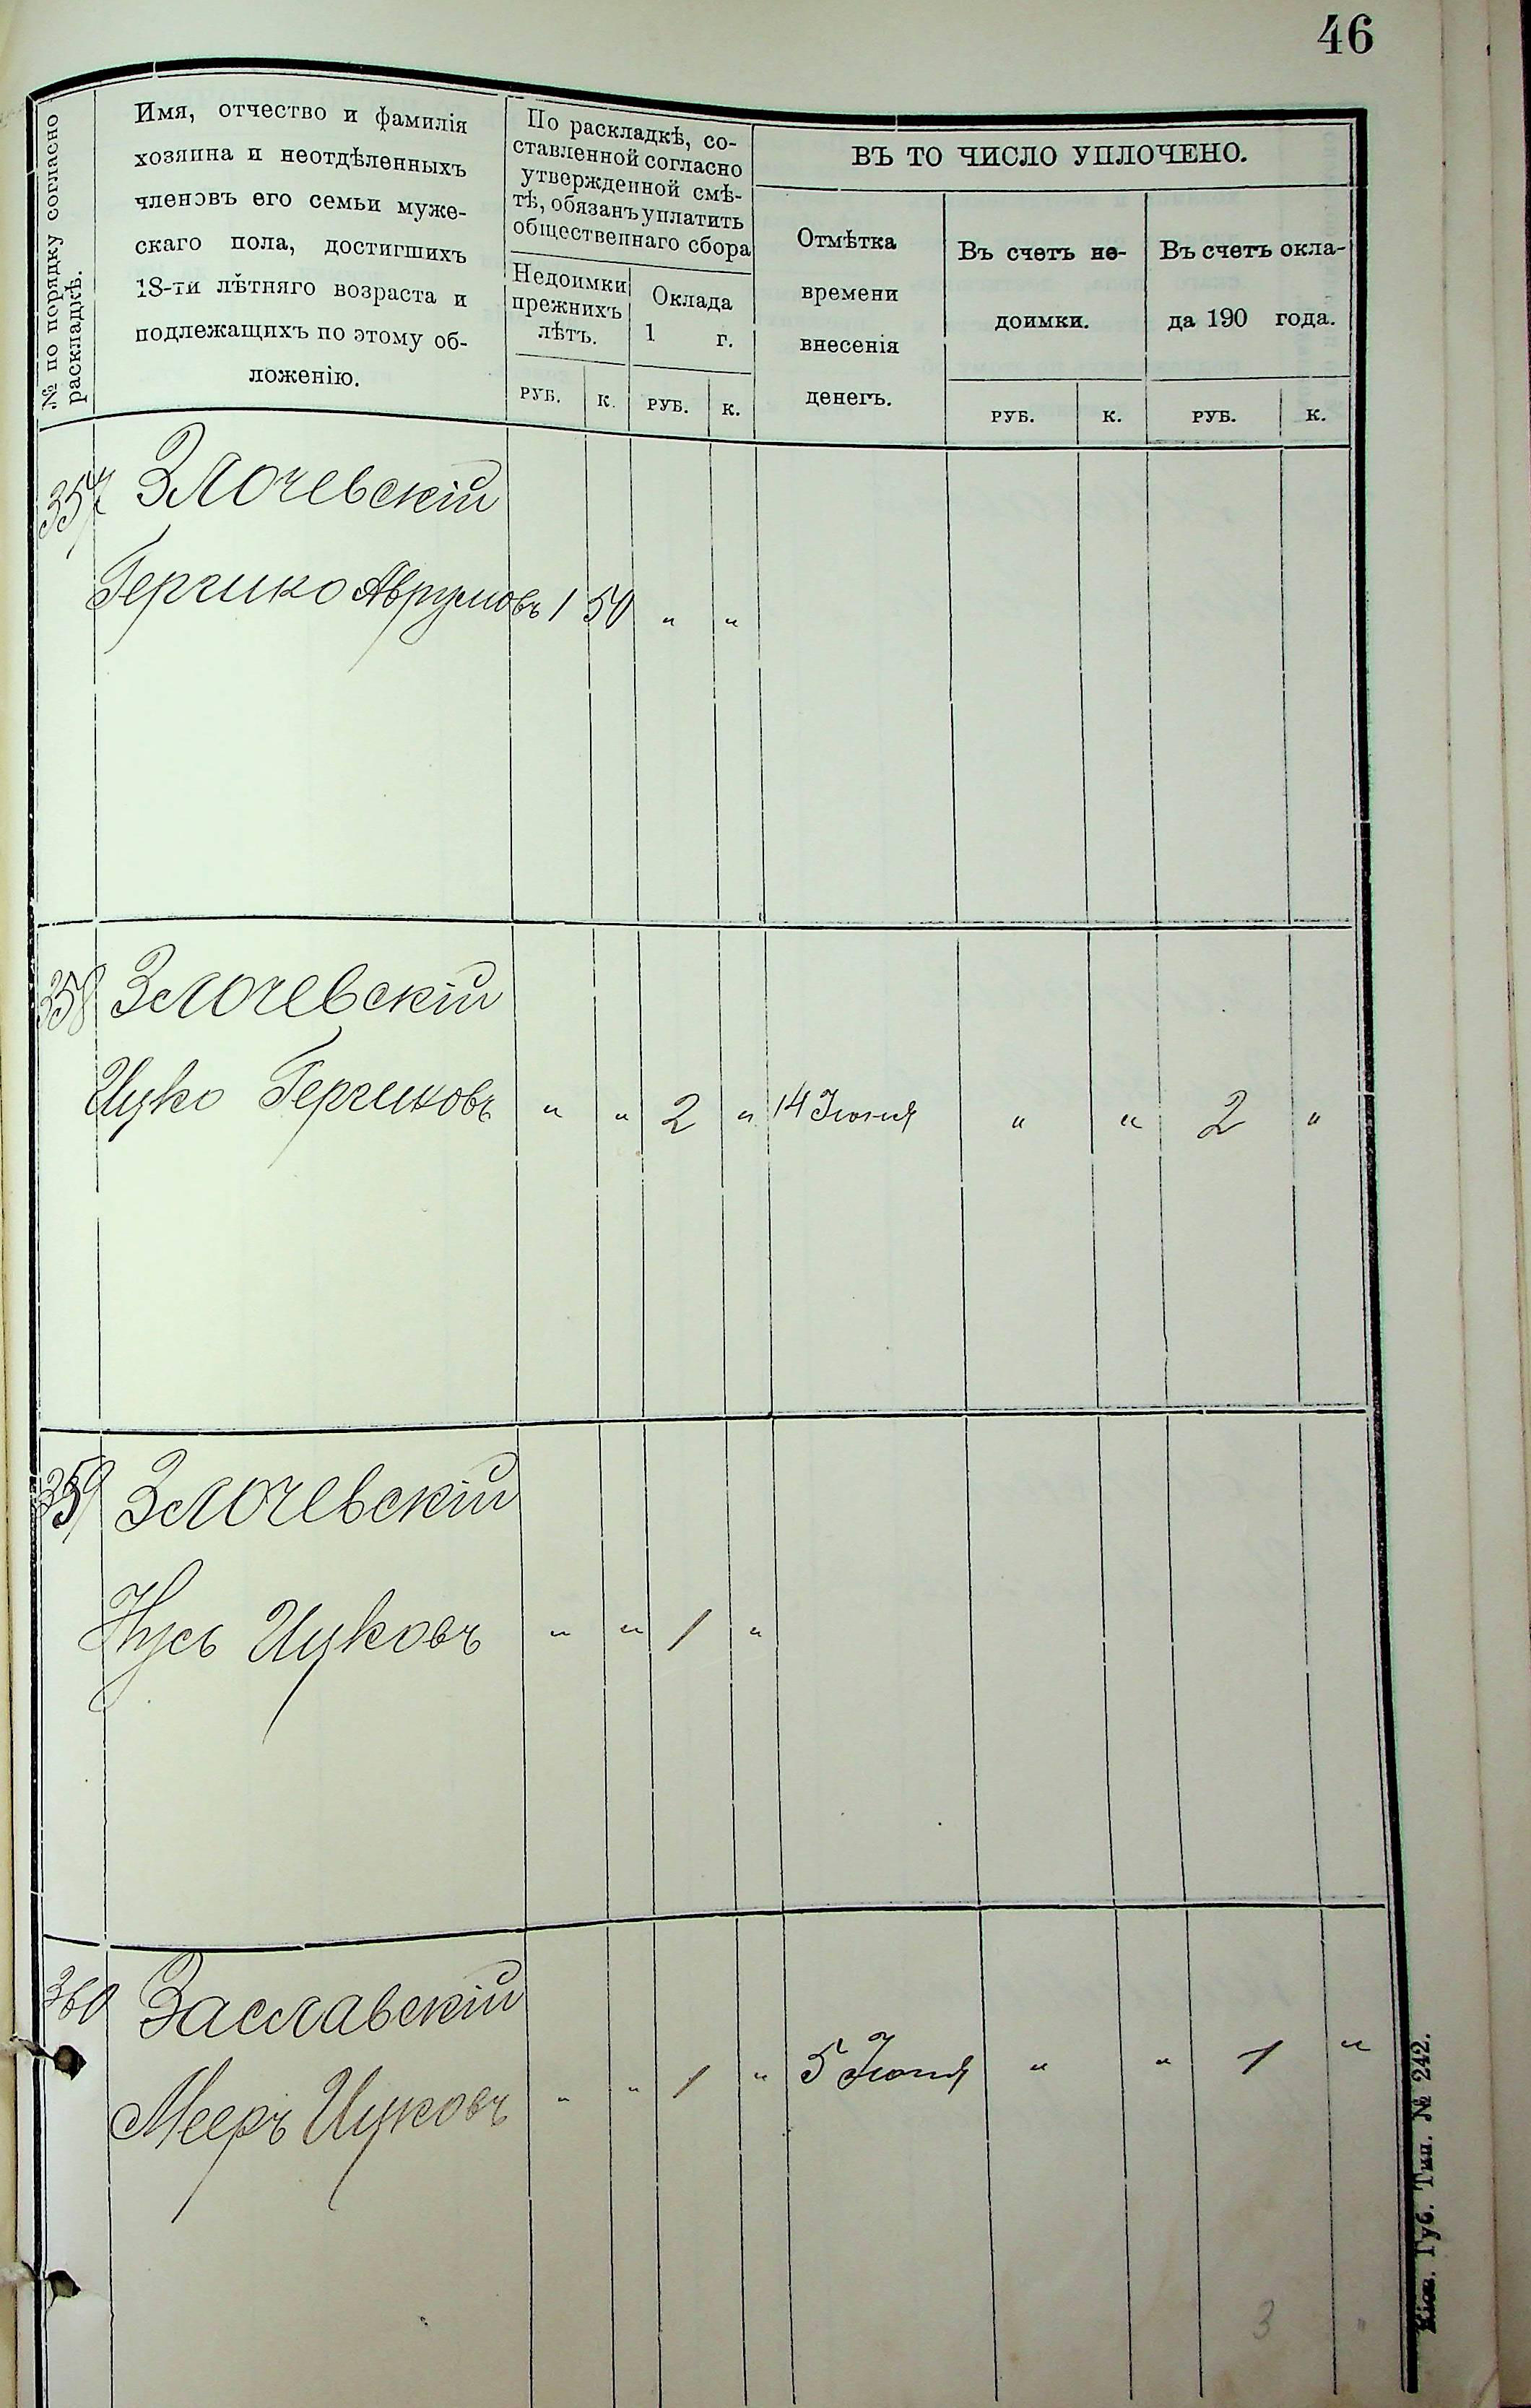 46
№ по порядку согласно
раскладкѣ.
Имя, отчество и фамилія
хозяина и неотдѣленныхъ
членовъ его семьи муже-
скаго пола, достигшихъ
18-ти лѣтняго возраста и
подлежащихъ по этому об-
ложенію.
По раскладкѣ, со-
ставленной согласно
утвержденной смѣ-
тѣ, обязанъ уплатить
общественнаго сбора
Недоимки
прежнихъ
лѣтъ.
Оклада
1 г.
РУБ. К. РУБ. К.
ВЪ ТО ЧИСЛО УПЛОЧЕНО.
Отмѣтка
времени
внесенія
денегъ.
Въ счетъ не-
доимки.
Въ счетъ окла-
да 190 года.
РУБ. К. РУБ. К.
357 Злочевскій
Гершко Аврумовъ 1 50 " "
358 Злочевскій
Ицко Гершковъ " " 2 " 14 Іюня " " 2 "
359 Злочевскій
Нусь Ицковъ " " 1 "
360 Заславскій
Мееръ Ицковъ " " 1 " 5 Іюня " " 1 "
3 "
Кіев. Губ. Тип. № 242.